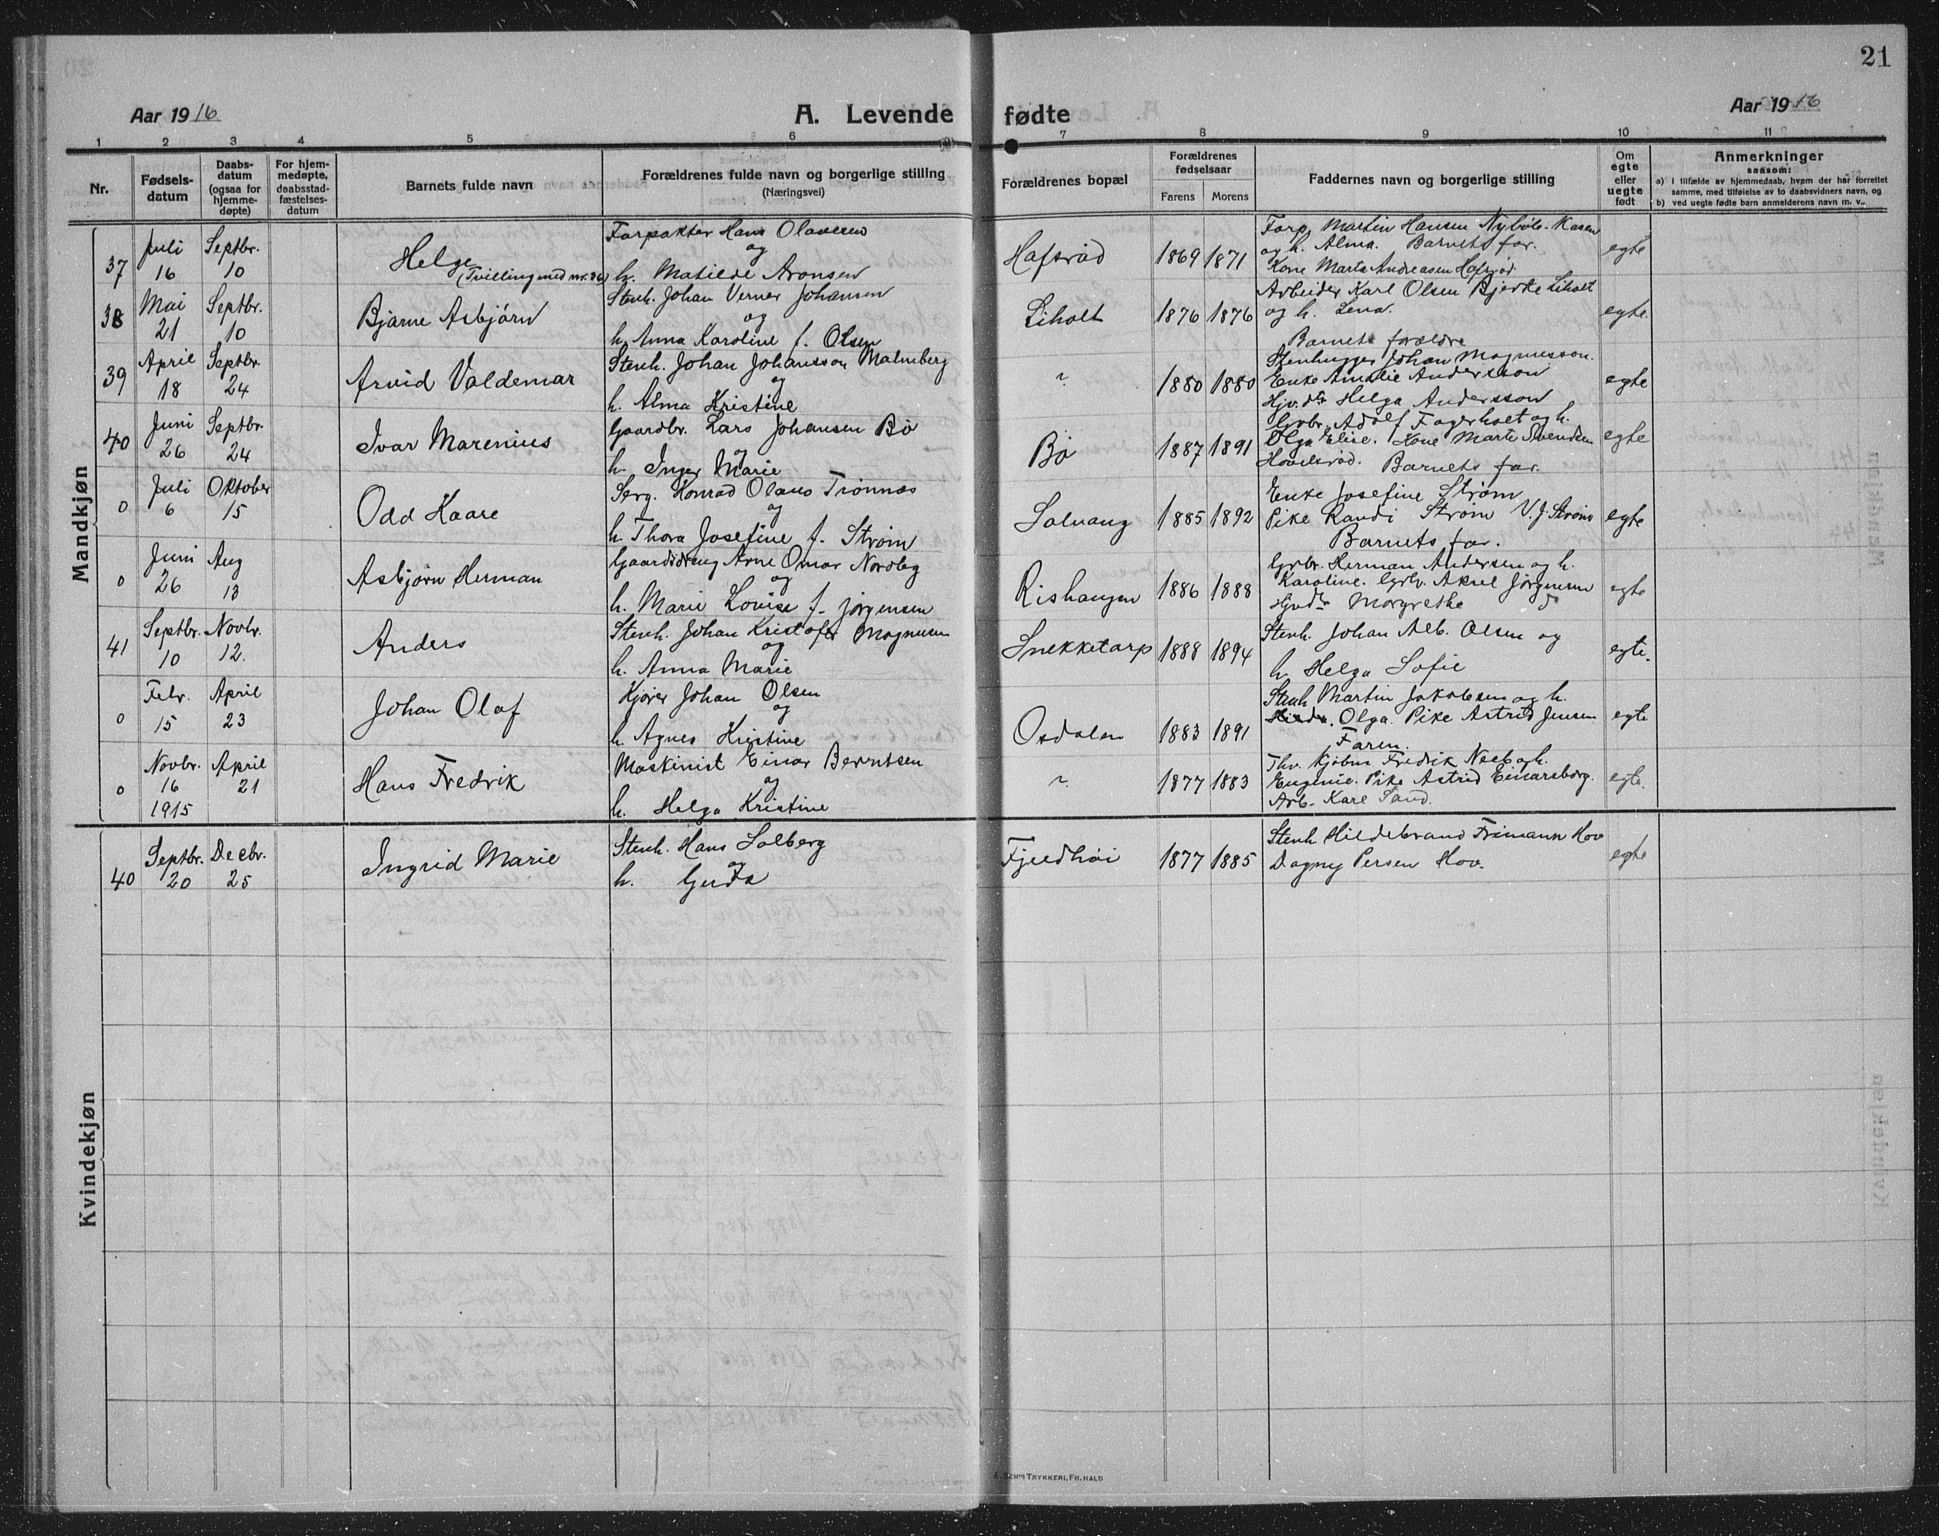 21
Aar 1916
A. Levende fødte
Aar 1916
1 2 3 4 5 6 7 8 9 10 11
Nr.
Fødsels-
datum
Daabs-
datum
(ogsaa for
hjemme-
døpte)
For hjem-
medøpte,
daabsstad-
fæstelses-
datum
Barnets fulde navn
Forældrenes fulde navn og borgerlige stilling
(Næringsvei)
Forældrenes bopæl
Forældrenes
fødselsaar
Farens Morens
Faddernes navn og borgerlige stilling
Om
egte
eller
uegte
født
Anmerkninger
saasom:
a) i tilfælde av hjemmedaab, hvem der har forrettet
samme, med tilføielse av to daabsvidners navn, og
b) ved uegte fødte barn anmelderens navn m. v..
Mandkjøn
37
Juli
16
Septbr.
10
Helge
(Tvilling med nr. 36)
Forpakter Hans Olavesen
og
h. Matilde Aronsen
Hafsrød
1869 1871
Forp. Martin Hansen Nybøle-Kasen
og h. Alma. Barnets far.
Kone Marta Andreasen Hafsrød
egte
38
Mai
21
Septbr.
10
Bjarne Asbjørn
Stenh. Johan Verner Johansen
og
h. Anna Karoline f. Olsen
Liholt
1876 1876
Arbeider Karl Olsen Bjerke Liholt
og h. Lena.
Barnets forældre
egte.
39
April
18
Septbr.
24
Arvid Valdemar
Stenh. Johan Johansson Malmberg
og
h. Alma Kristine
"
1880 1880
Stenhugger Johan Magnusson.
Enke Amalie Andersson
Hjv.dtr Helga Andersson
egte
40
Juni
26
Septbr.
24
Ivar Marenius
Gaardbr. Lars Johansen Bø
og
h. Inger Marie
Bø
1887 1891
Grbr. Adolf Fagerholt og h.
Olga Elise. Kone Marte Svendsen
Hovelsrød. Barnets far.
egte
0
Juli
6
Oktober
15
Odd Kaare
Serg. Konrad Olaus Trønnes
og
h. Thora Josefine f. Strøm
Solvang
1885 1892
Enke Josefine Strøm
Pike Randi Strøm V. J. Strøm
Barnets far.
egte
0
Juni
26
Aug
13
Asbjørn Herman
Gaarddreng Arne Omar Nordby
og
h. Marie Lovise f. Jørgensen
Rishaugen
1886 1888
Grbr. Herman Andersen og h.
Karoline. Grbr. Aksel Jørgensen
Hjvdtr Margrethe do
egte
41
Septbr.
10
Novbr.
12.
Anders
Stenh. Johan Kristofer Magnusen
og
h. Anna Marie
Snekketorp
1888 1894
Stenh. Johan Alb. Olsen og
h. Helga Sofie
egte.
0
Febr.
15
April
23
Johan Olaf
Kjører Johan Olsen
og
h. Agnes Kristine
Osdalen
1883 1891
Stenh Martin Jakobsen og h.
Olga. Pike Astrid Jensen
Faren.
egte
0
Novbr.
16
1915
April
21
Hans Fredrik
Maskinist Einar Berntsen
og
h. Helga Kristine
"
1877 1883
Thv. Kjøbm Fredrik Neeb og h.
Eugenie. Pike Astrid Einarsborg.
Arb. Karl Sand.
egte.
Kvindekjøn
40
Septbr.
20
Decbr.
25
Ingrid Marie
Stenh. Hans Solberg
og
h. Gerda
Fjeldhøi
1877 1885
Stenh Hildebrand Frimann Hov
Dagny Persen Hov.
egte
E. Sems Trykkeri, Fr.hald